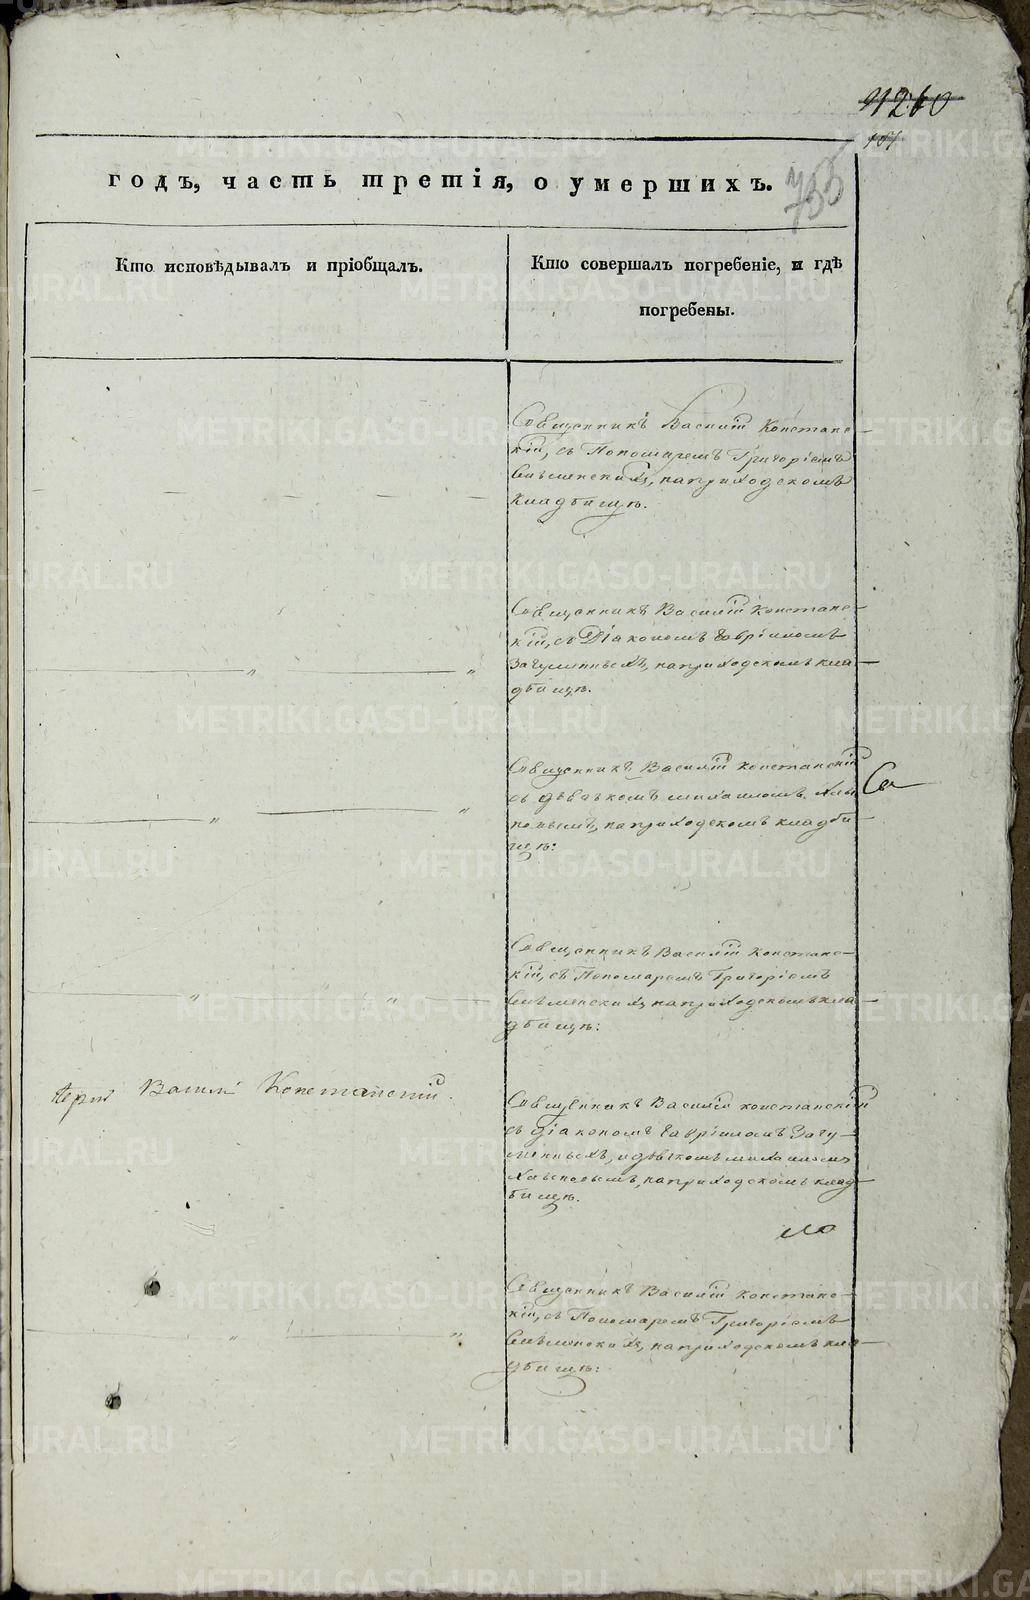 годъ, часть третія, о умершихъ.
755
Кто исповѣдывалъ и пріобщалъ.
Кто совершалъ погребеніе, и гдѣ
погребены.
Священникъ Василій Констанс-
кій, съ Пономаремъ Григоріемъ
на приходскомъ
кладбищѣ.
Священникъ Василій Констанс-
кій, съ Діакономъ Гавріиломъ
Загуменныхъ, на приходскомъ кла-
дбищѣ.
Священникъ Василій Констанскій
съ дьячкомъ Михаиломъ
на приходскомъ кладби-
щѣ:
Священникъ Василій Констанс-
кій, съ Пономаремъ Григоріемъ
на приходскомъ кла-
дбищѣ:
Іерей Василій Констанскій.
Священникъ Василій Констанскій
съ діакономъ Гавріиломъ Загу-
менныхъ, и дьячкомъ Михаиломъ
на приходскомъ клад-
бищѣ.
Священникъ Василій Констанс-
кій, съ Пономаремъ Григоріемъ
на приходскомъ кла-
дбищѣ:
METRIKI.GASO-URAL.RU